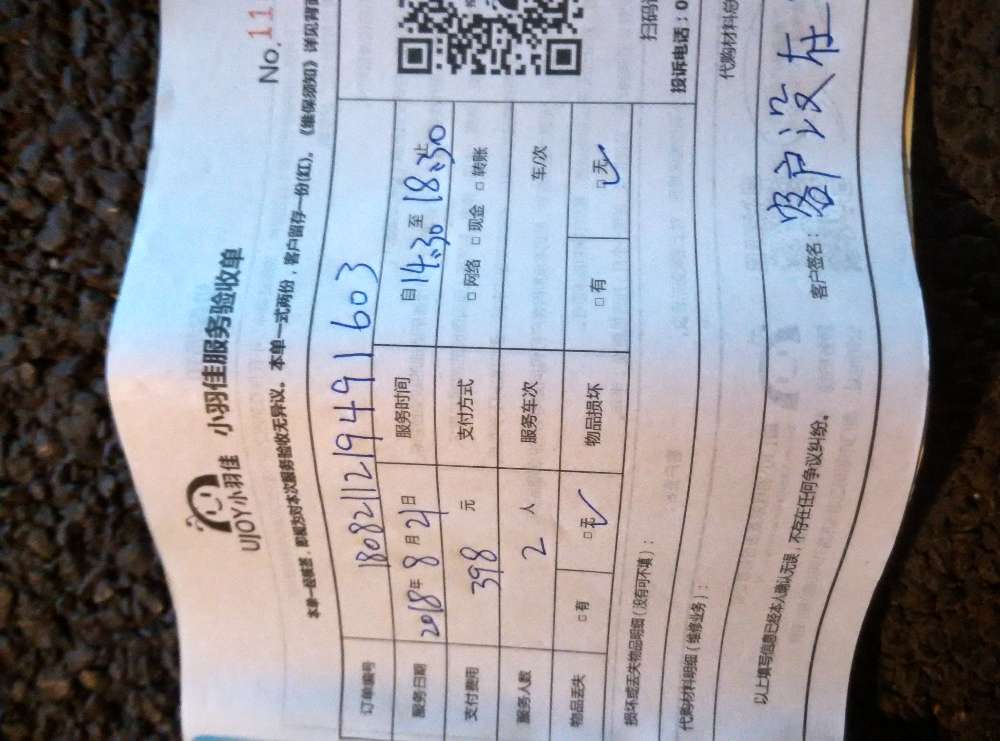 UJOY小羽佳 小羽佳服务验收单
No.11
本单一经签署，即视为对本次服务验收无异议。本单一式两份，客户留存一份(红)。《维保须知》详见背面
订单编号 180821121949491603
服务日期 2018年8月21日 服务时间 自14:30至18:30止
支付费用 398元 支付方式 □网络 □现金 □转账
服务人数 2人 服务车次 车/次
物品丢失 □有 □无✓ 物品损坏 □有 □无✓
扫码
投诉电话：0
损坏或丢失物品明细（没有可不填）：
代购材料明细（维修业务）：
代购材料总
以上填写信息已经本人确认无误，不存在任何争议纠纷。
客户签名：客户没在